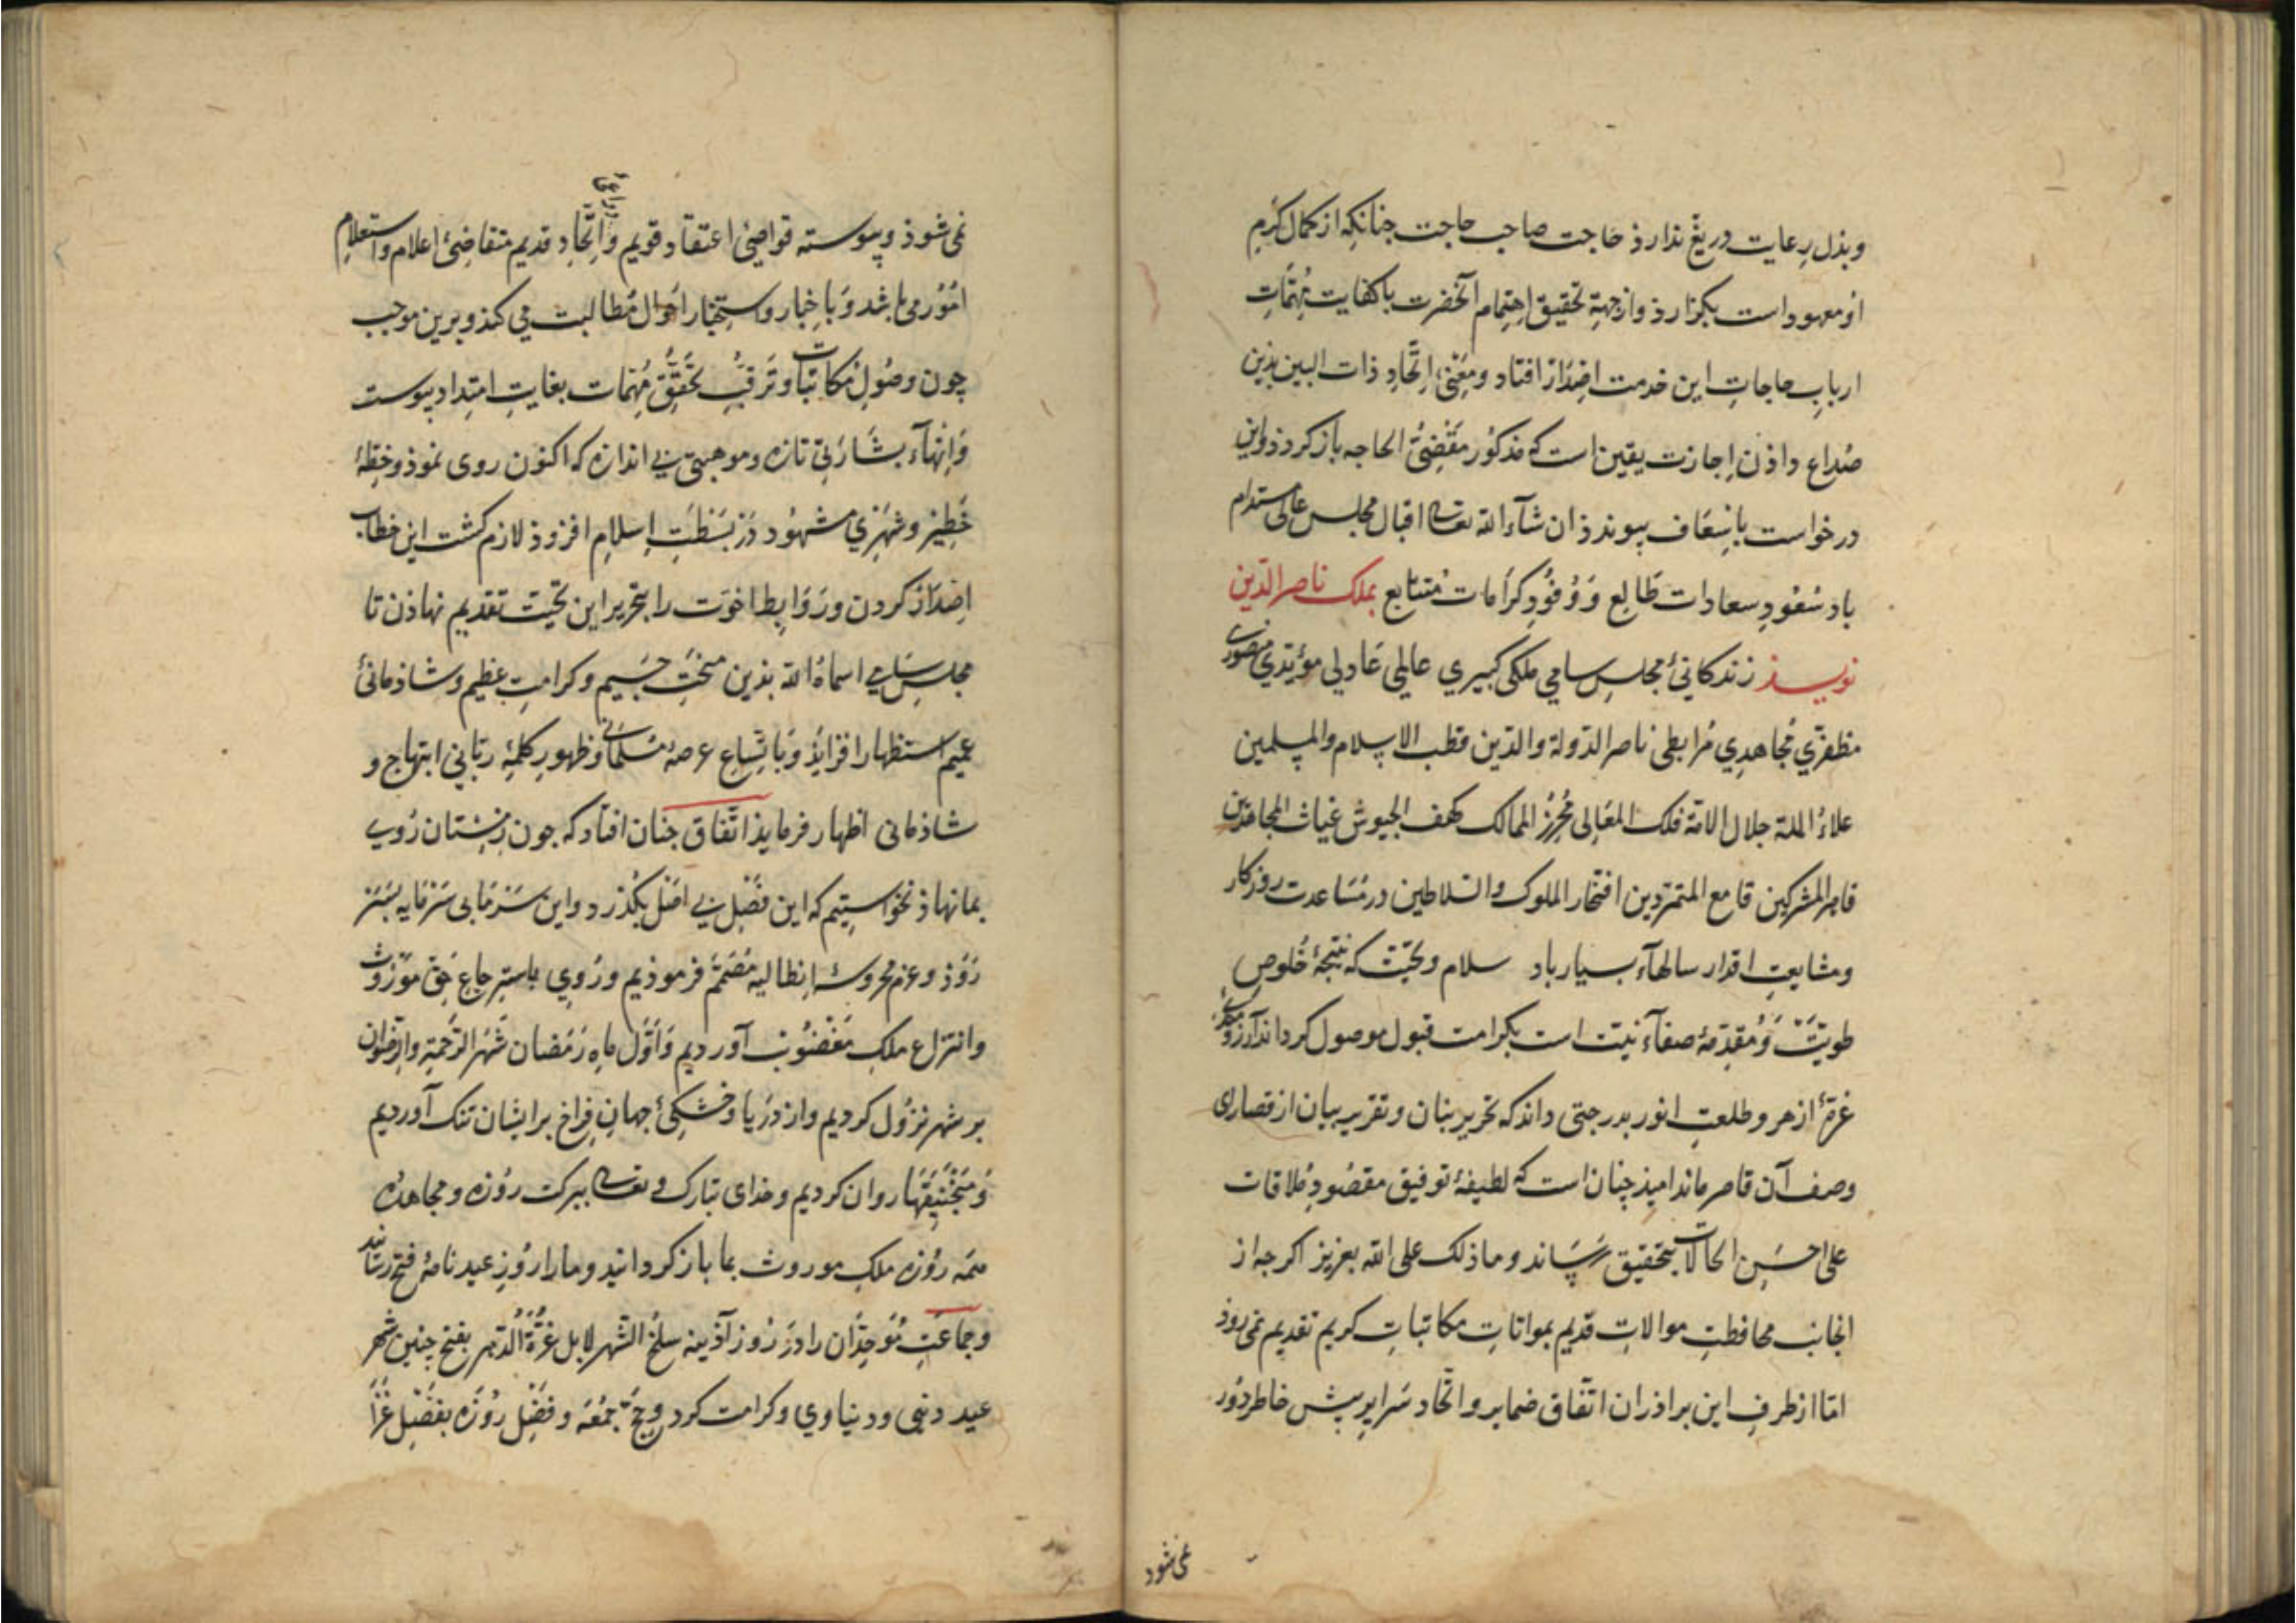 وبذل رعایت دریغ ندارذ حاجت صاحب حاجت جنانکه از کمال کرم
او معهود است بکزارذ واز جهة تحقیق اهتمام آنحضرت باکفایت مهمّات
ارباب حاجات این خدمت اصدار افتاد ومعنی اتّحاد ذات البین بذین
صداع داذن اجازت یقین است که مذکور مقضیّ الحاجه باز کردذ واین
درخواست باسعاف بیوندذ ان شآء الله تعالی اقبال مجلس عالی مستدام
باد سعود سعادات طالع و وفود کرامات متتابع بملک ناصر الدّین
نویسذ زندکانیٔ مجلس سامی ملکی کبیری عالمی عادلی مؤیّدی منصوری
مظفّری مجاهدی مرابطی ناصر الدّولة والدّین قطب الاسلام والمسلمین
علاء الملة جلال الامّة فلک المعالی محرز الممالک کهف الجیوش غیاث المجاهدین
قاهر المشرکین قامع المتمرّدین افتخار الملوک والسّلاطین در مساعدت روزکار
ومشایعت اقدار سالهآء بسیار باد سلام وتحیّت که نتیجهٔ خلوص
طویّت و مقدّمهٔ صفآء نیّت است بکرامت قبول موصول کرداند آرزو
غرّهٔ ازهر وطلعت انور بدرجتی داند که تحریر بنان وتقریر بیان از قصارای
وصف آن قاصر ماند امیذ جنان است که لطیفهٔ توفیق مقصود ملاقات
علی احسن الحالات بتحقیق رساند وما ذلک علی الله بعزیز اکر جه از
انجانب محافظت موالات قدیم بمواتات مکاتبات کریم تقدیم نمی روذ
امّا از طرف این براذران اتّفاق ضمایر واتّحاد سرایر بیش خاطر دور
نمی شود
نمی شوذ وپیوسته قواضیٔ اعتقاد قویم و اتّحاد قدیم متقاضیٔ اعلام واستعلام
امور می باشد و باخبار واستخبار احوال مطالبت می کند وبرین موجب
چون وصول مکاتبات وترقّب تحقّق مهمّات بغایت امتداد بیوست
وانهآء بشارتی تازه وموهبتی بی اندازه که اکنون روی نموذ وخطّهٔ
خطیر وشهری مشهود در بسطت اسلام افزوذ لازم کشت این خطاب
اصدار کردن وروابط اخوّت را بتحریر این تحیّت تقدیم نهاذن تا
مجلس سامی اسماه الله بذین منحت جسیم وکرامت عظیم وشاذمانیٔ
عمیم استظهار افزایذ وباتّساع عرصهٔ مسلمانی وظهور کلمهٔ ربّانی ابتهاج و
شاذمانی اظهار فرمایذ اتّفاق جنان افتاد که جون زمستان روی
بما نهاذ نخواستیم که این فصل بی اصل بکذرد واین سرمای سرمایه بسر
روذ وعزم محروسهٔ انطالیه مصمّم فرموذیم وروی باسترجاع حقّ موروث
وانتزاع ملک مغصوب آوردیم واوّل ماه رمضان شهر الرّحمة والرّضوان
بر شهر نزول کردیم واز دریا وخشکیٔ جهان فراخ بر ایشان تنک آوردیم
ومنجنیقها روان کردیم وخدای تبارک و تعالی ببرکت روزه ومجاهدهٔ
همه روزه ملک موروث بما باز کردانید وما را روز عید نامهٔ فتح رسانید
وجماعت موحّدان را در روز آذینه سلخ الشّهر لا بل غرّة الدّهر بفتح چنین شهر
عید دینی ودنیاوی وکرامت کرد وحجّ جمعه وفضل روزه بفضل غزا